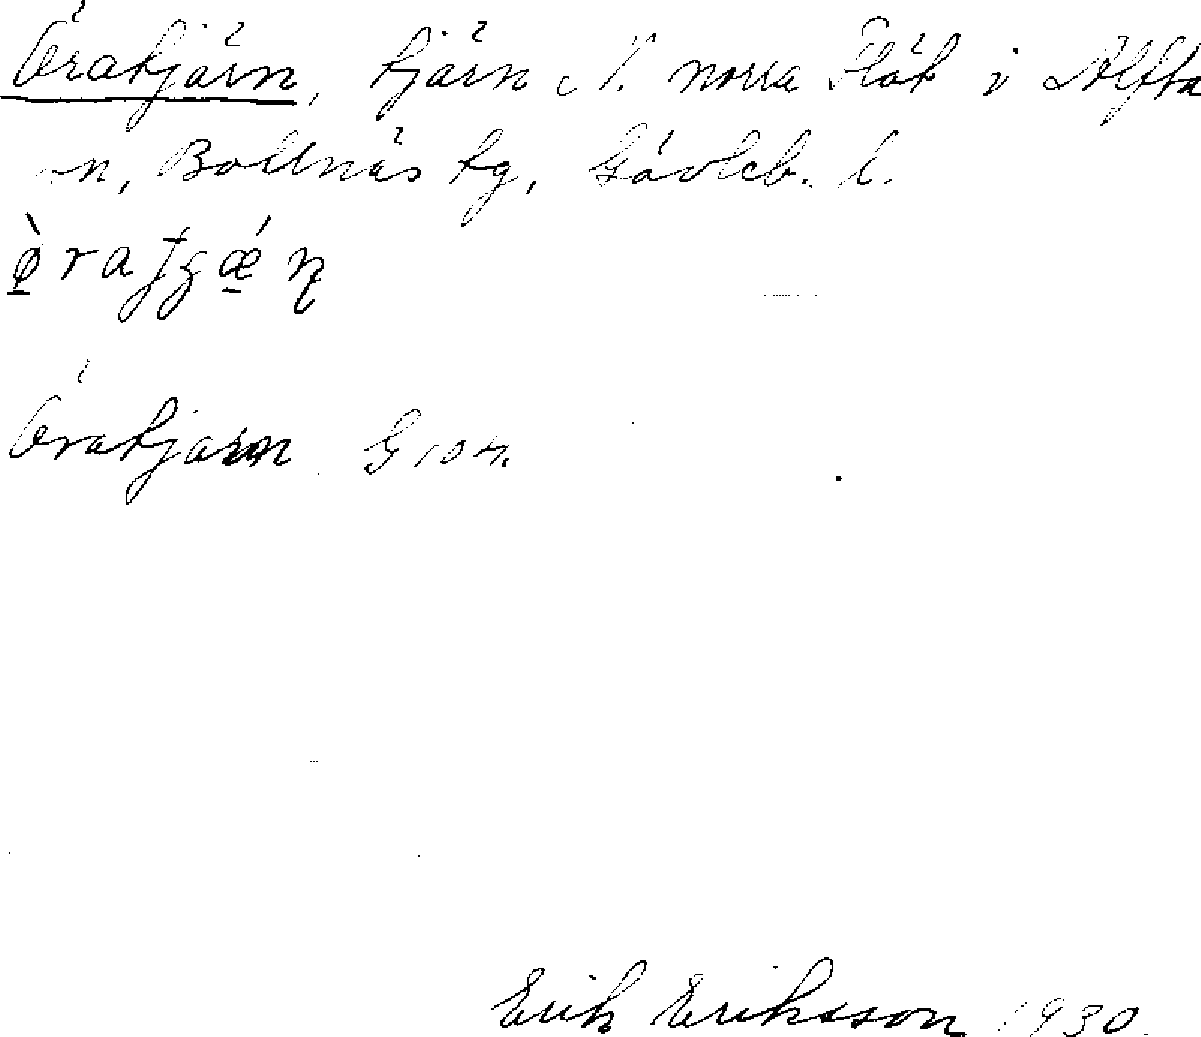 Öratjärn, tjärn i N. norra Flät i Alfta
sn, Bollnäs tg, Gävleb. l.
ø̀rafgǽn
Öratjärn G 104.
Erik Eriksson 1930.